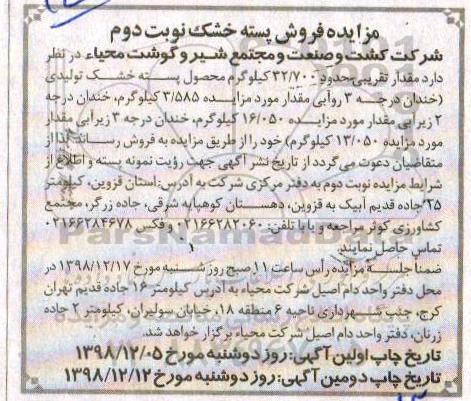 مزایده فروش پسته خشک نوبت دوم
شرکت کشت و صنعت و مجتمع شیر و گوشت محیاء در نظر
دارد مقدار تقریبی حدود ۳۲/۷۰۰ کیلوگرم محصول پسته خشک تولیدی
(خندان درجه ۳ روآبی مقدار مورد مزایده ۳/۵۸۵ کیلوگرم، خندان درجه
۲ زیرآبی مقدار مورد مزایده ۱۶/۰۵۰ کیلوگرم، خندان درجه ۳ زیرآبی مقدار
مورد مزایده ۱۳/۰۵۰ کیلوگرم) خود را از طریق مزایده به فروش رساند. لذا از
متقاضیان دعوت می گردد از تاریخ نشر آگهی جهت رؤیت نمونه پسته و اطلاع از
شرایط مزایده نوبت دوم به دفتر مرکزی شرکت به آدرس: استان قزوین، کیلومتر
۲۵ جاده قدیم آبیک به قزوین، دهستان کوهپایه شرقی، جاده زرگر، مجتمع
کشاورزی کوثر مراجعه و یا با تلفن: ۰۲۱۶۶۲۸۲۰۶۰ و فکس ۰۲۱۶۶۲۸۴۶۷۸
تماس حاصل نمایند.
ضمنا جلسه مزایده رأس ساعت ۱۱ صبح روز شنبه مورخ ۱۳۹۸/۱۲/۱۷ در
محل دفتر واحد دام اصیل شرکت محیاء به آدرس کیلومتر ۱۶ جاده قدیم تهران
کرج، جنب شهرداری ناحیه ۶ منطقه ۱۸، خیابان سولیران، کیلومتر ۲ جاده
زرنان، دفتر واحد دام اصیل شرکت محیاء برگزار خواهد شد.
تاریخ چاپ اولین آگهی: روز دوشنبه مورخ ۱۳۹۸/۱۲/۰۵
تاریخ چاپ دومین آگهی: روز دوشنبه مورخ ۱۳۹۸/۱۲/۱۲